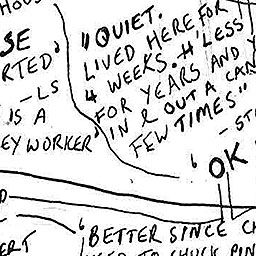 HOUS
SE
RTED'
- LS
IS A
EY WORKER'
"QUIET.
LIVED HERE FOR
4 WEEKS. H'LESS
FOR YEARS AND
IN & OUT A CAR
FEW TIMES"
- ST
'OK
'BETTER SINCE
ERT